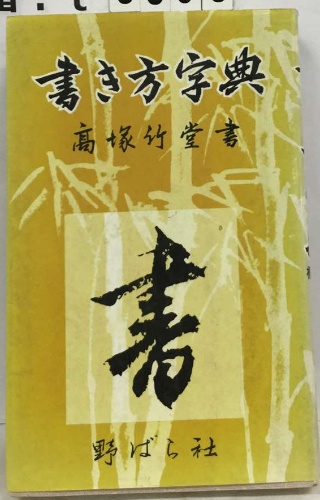 書き方字典
高塚竹堂書
書
野ばら社